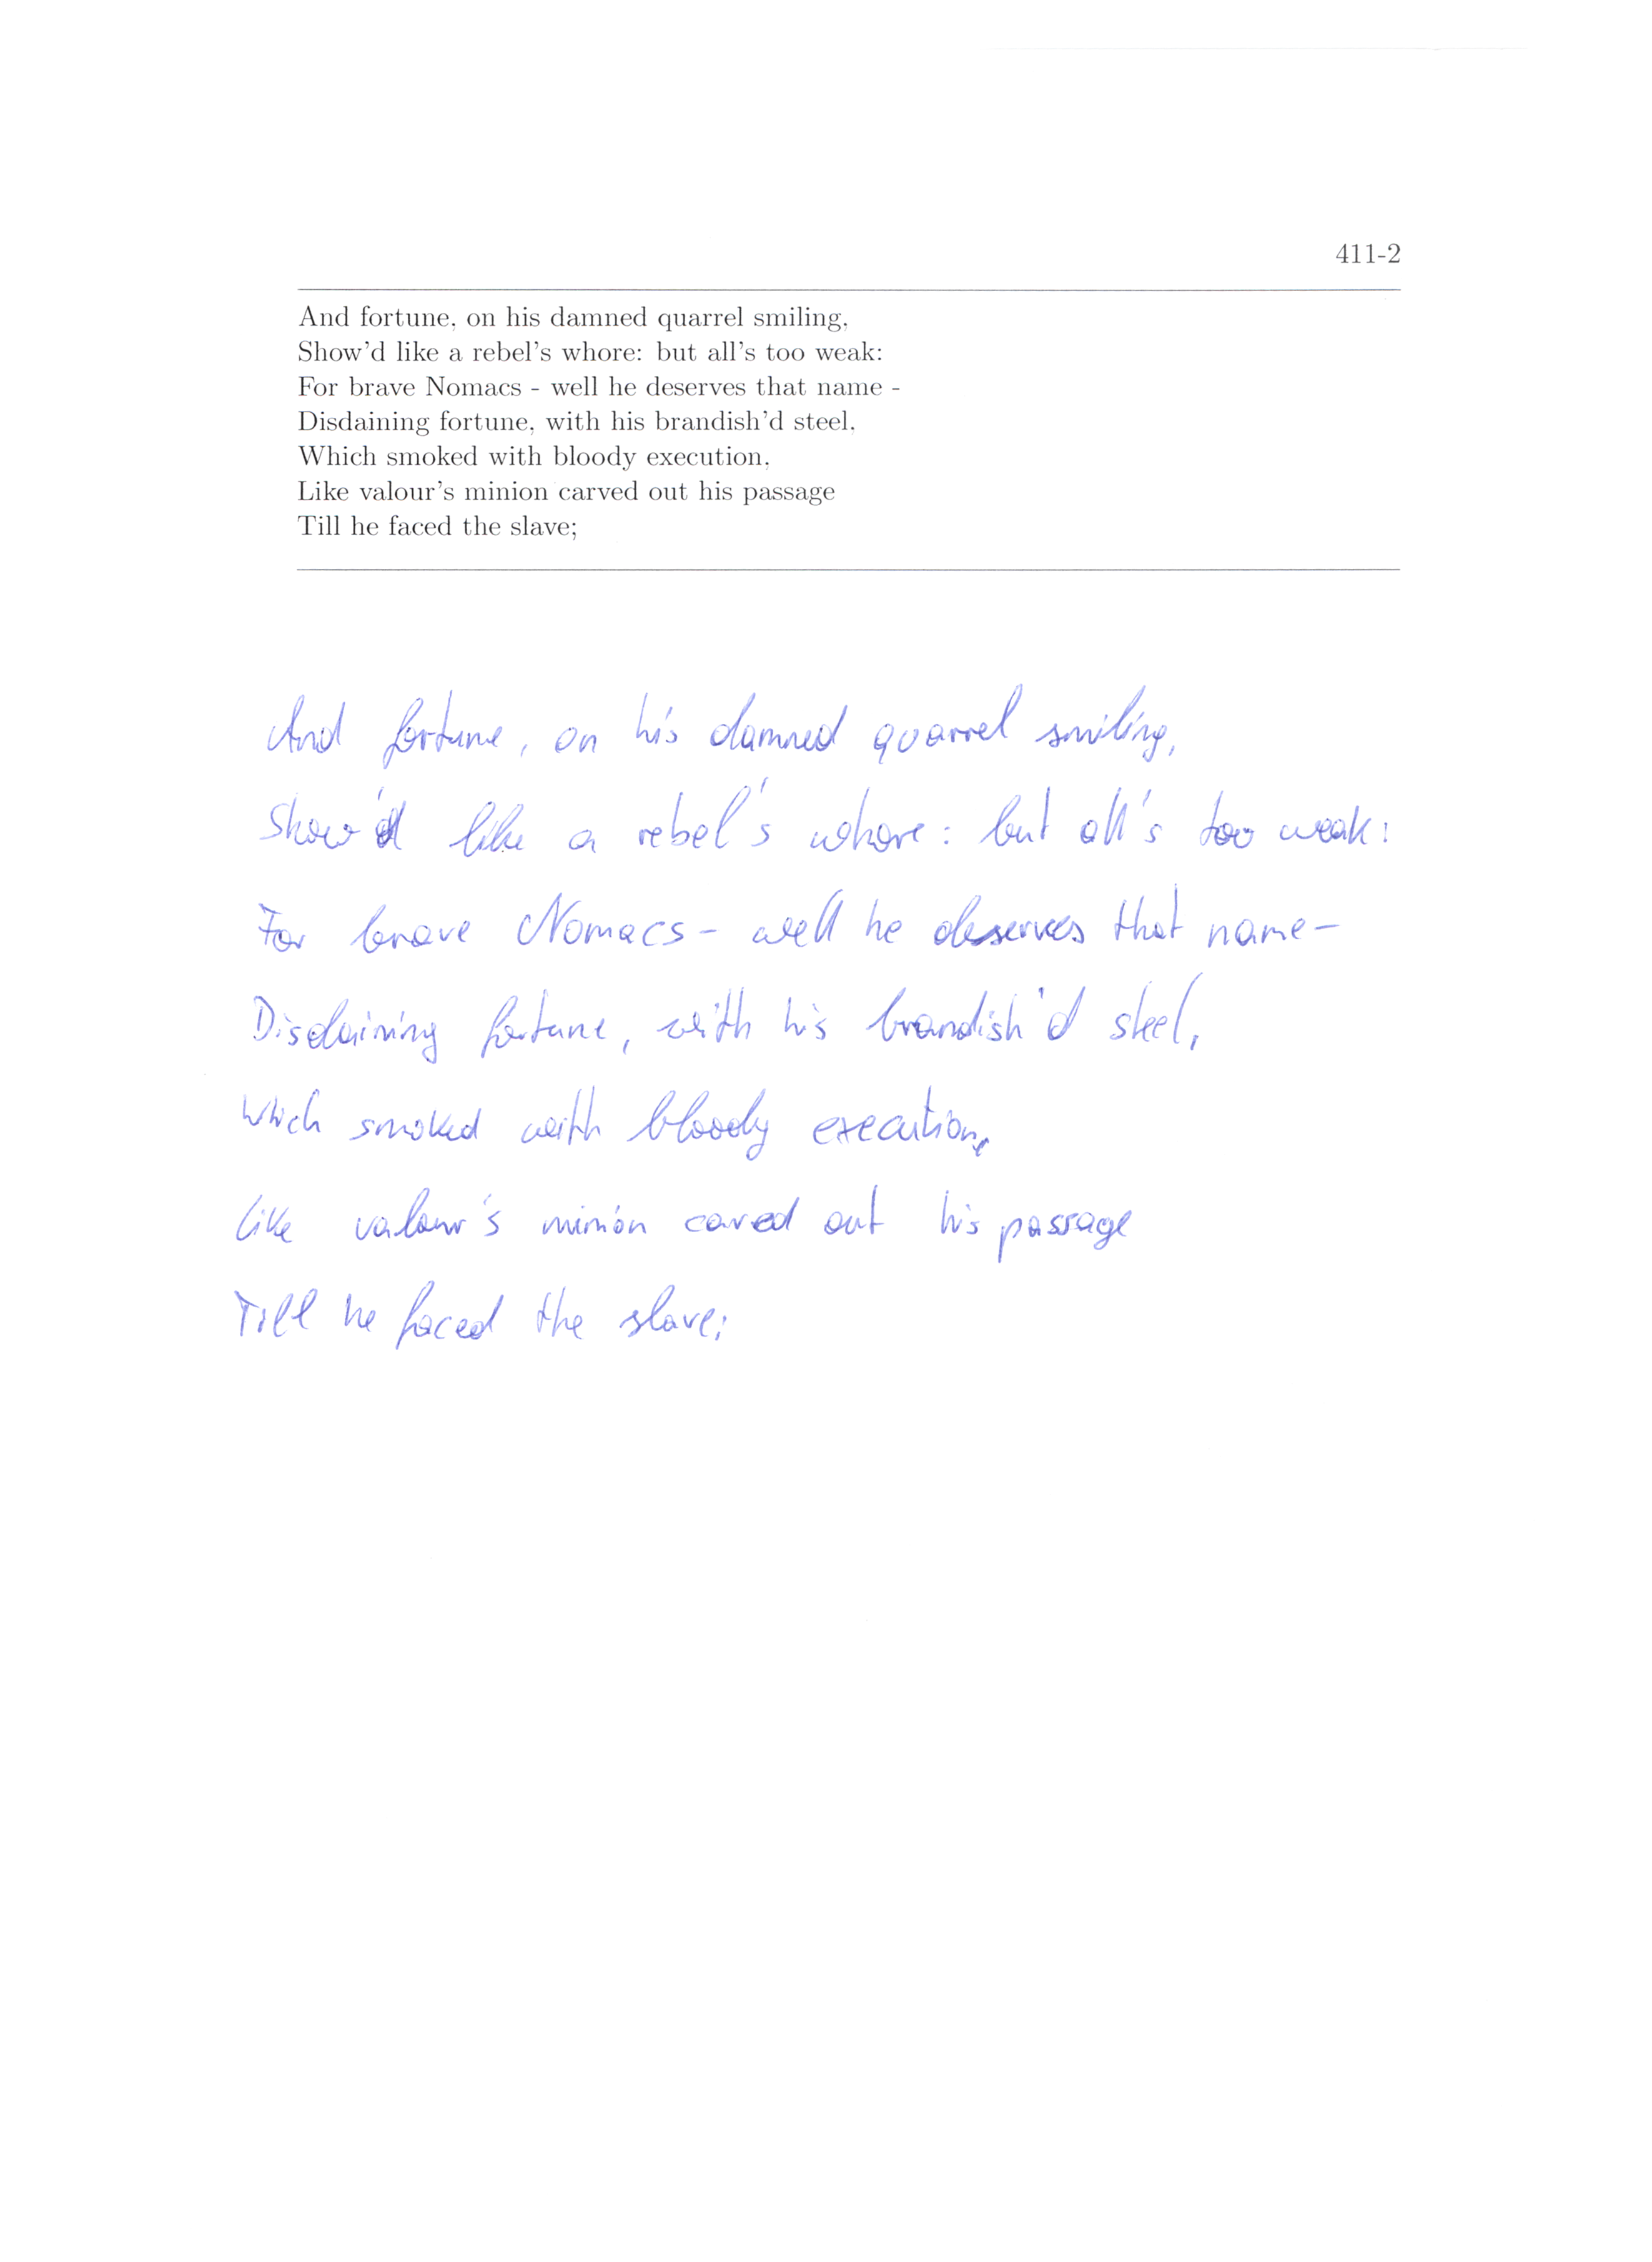 411-2
And fortune, on his damned quarrel smiling,
Show'd like a rebel's whore: but all's too weak:
For brave Nomacs - well he deserves that name -
Disdaining fortune, with his brandish'd steel,
Which smoked with bloody execution,
Like valour's minion carved out his passage
Till he faced the slave;
And fortune, on his damned quarrel smiling,
Show'd like a rebel's whore: but all's too weak:
For brave Nomacs - well he deserves that name -
Disdaining fortune, with his brandish'd steel,
Which smoked with bloody execution,
like valour's minion caved out his passage
Till he faced the slave;